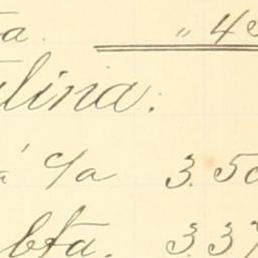 a. " 45
lina:
a c/a 3.50
bta. 3.37